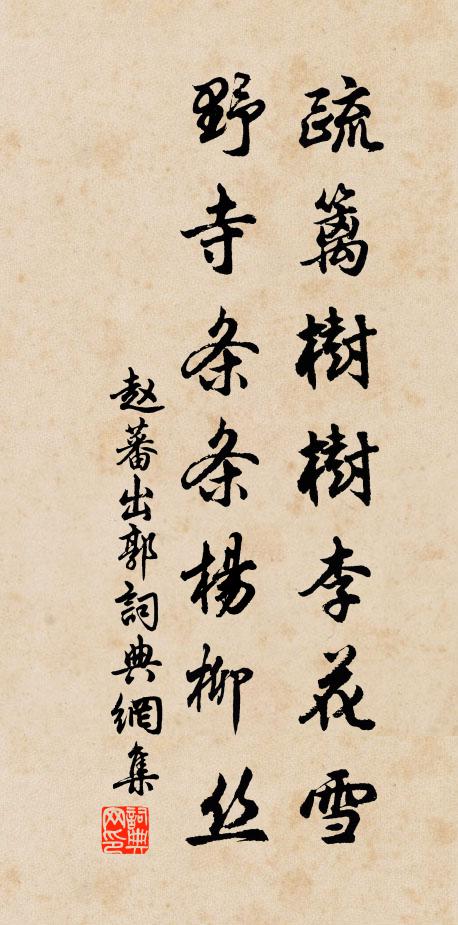 疏篱樹樹李花雪
野寺条条楊柳丝
赵蕃出郭詞典網集
詞典网印